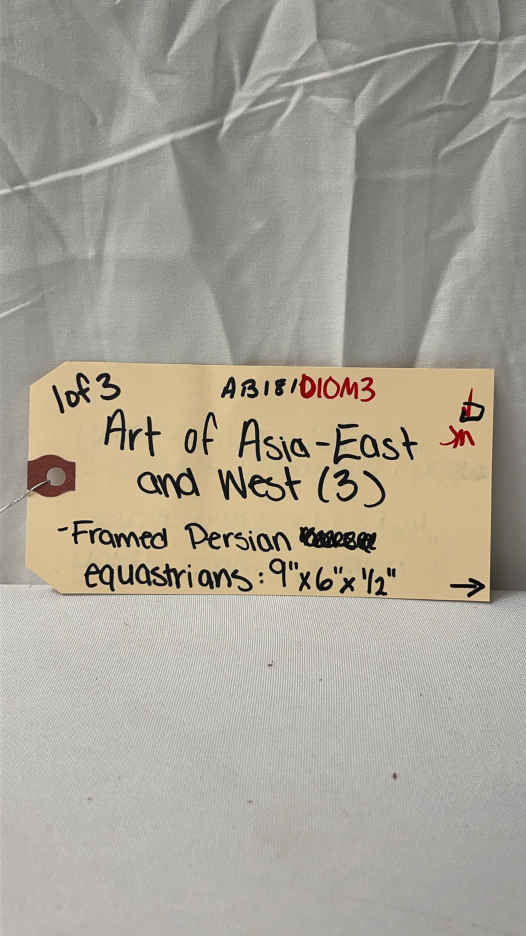 1 of 3
AB181D10M3
Art of Asia-East
and West (3)
-Framed Persian
equastrians: 9"x6"x 1/2"
→